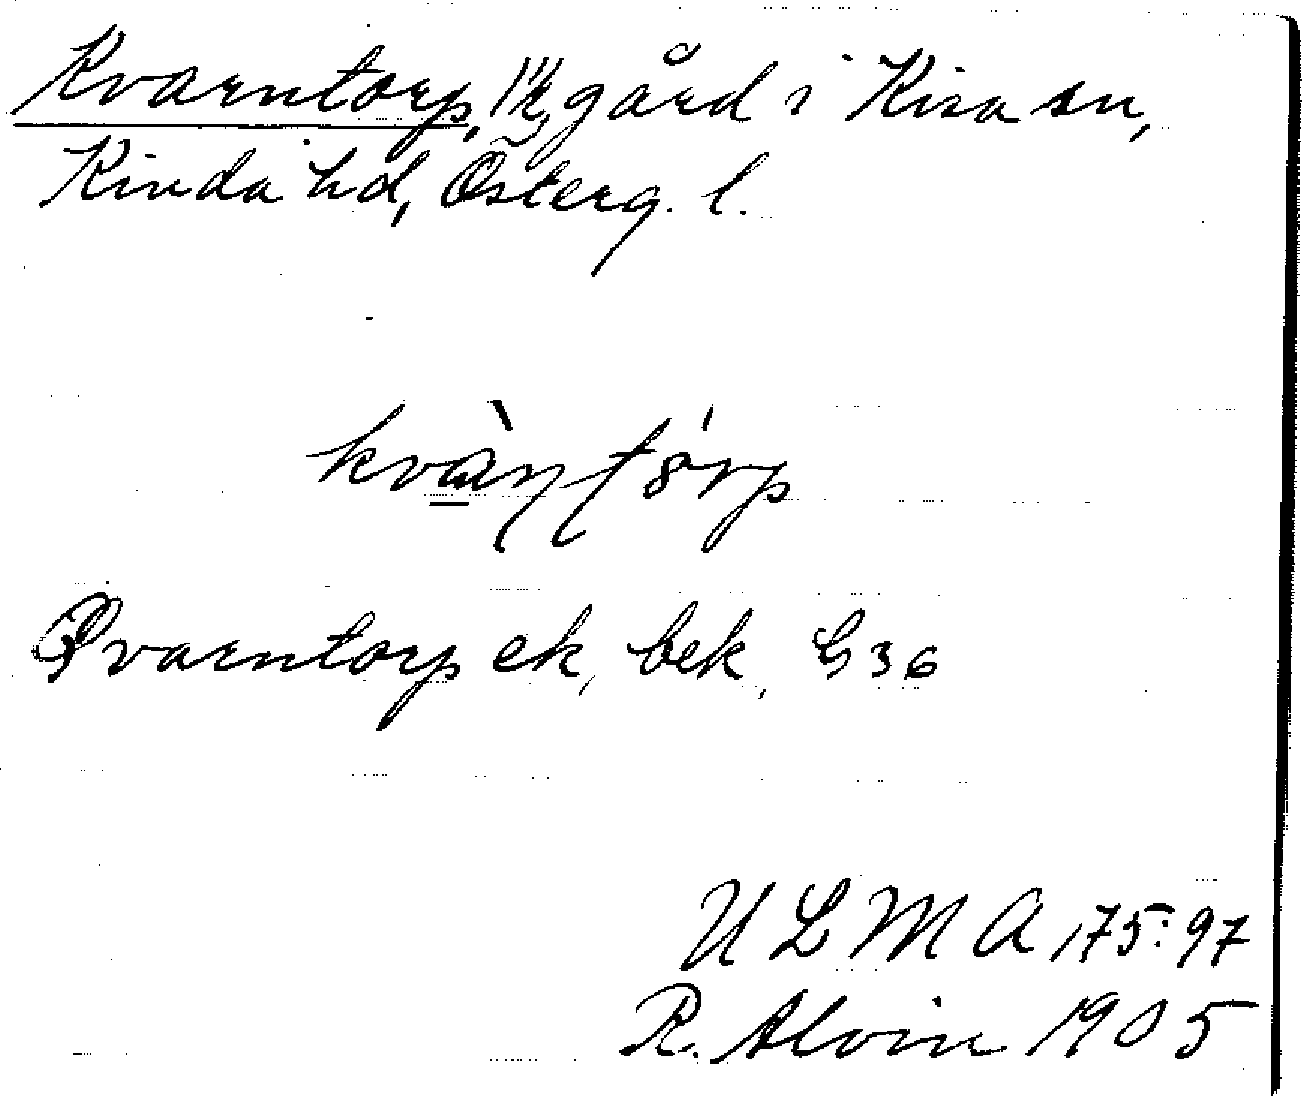 Kvarntorp, gård i Kisa sn,
Kinda hd, Österg. l.
kvàɳʈórp
Qvarntorp ek, bek, G 36
ULMA 175:97
R. Alvin 1905